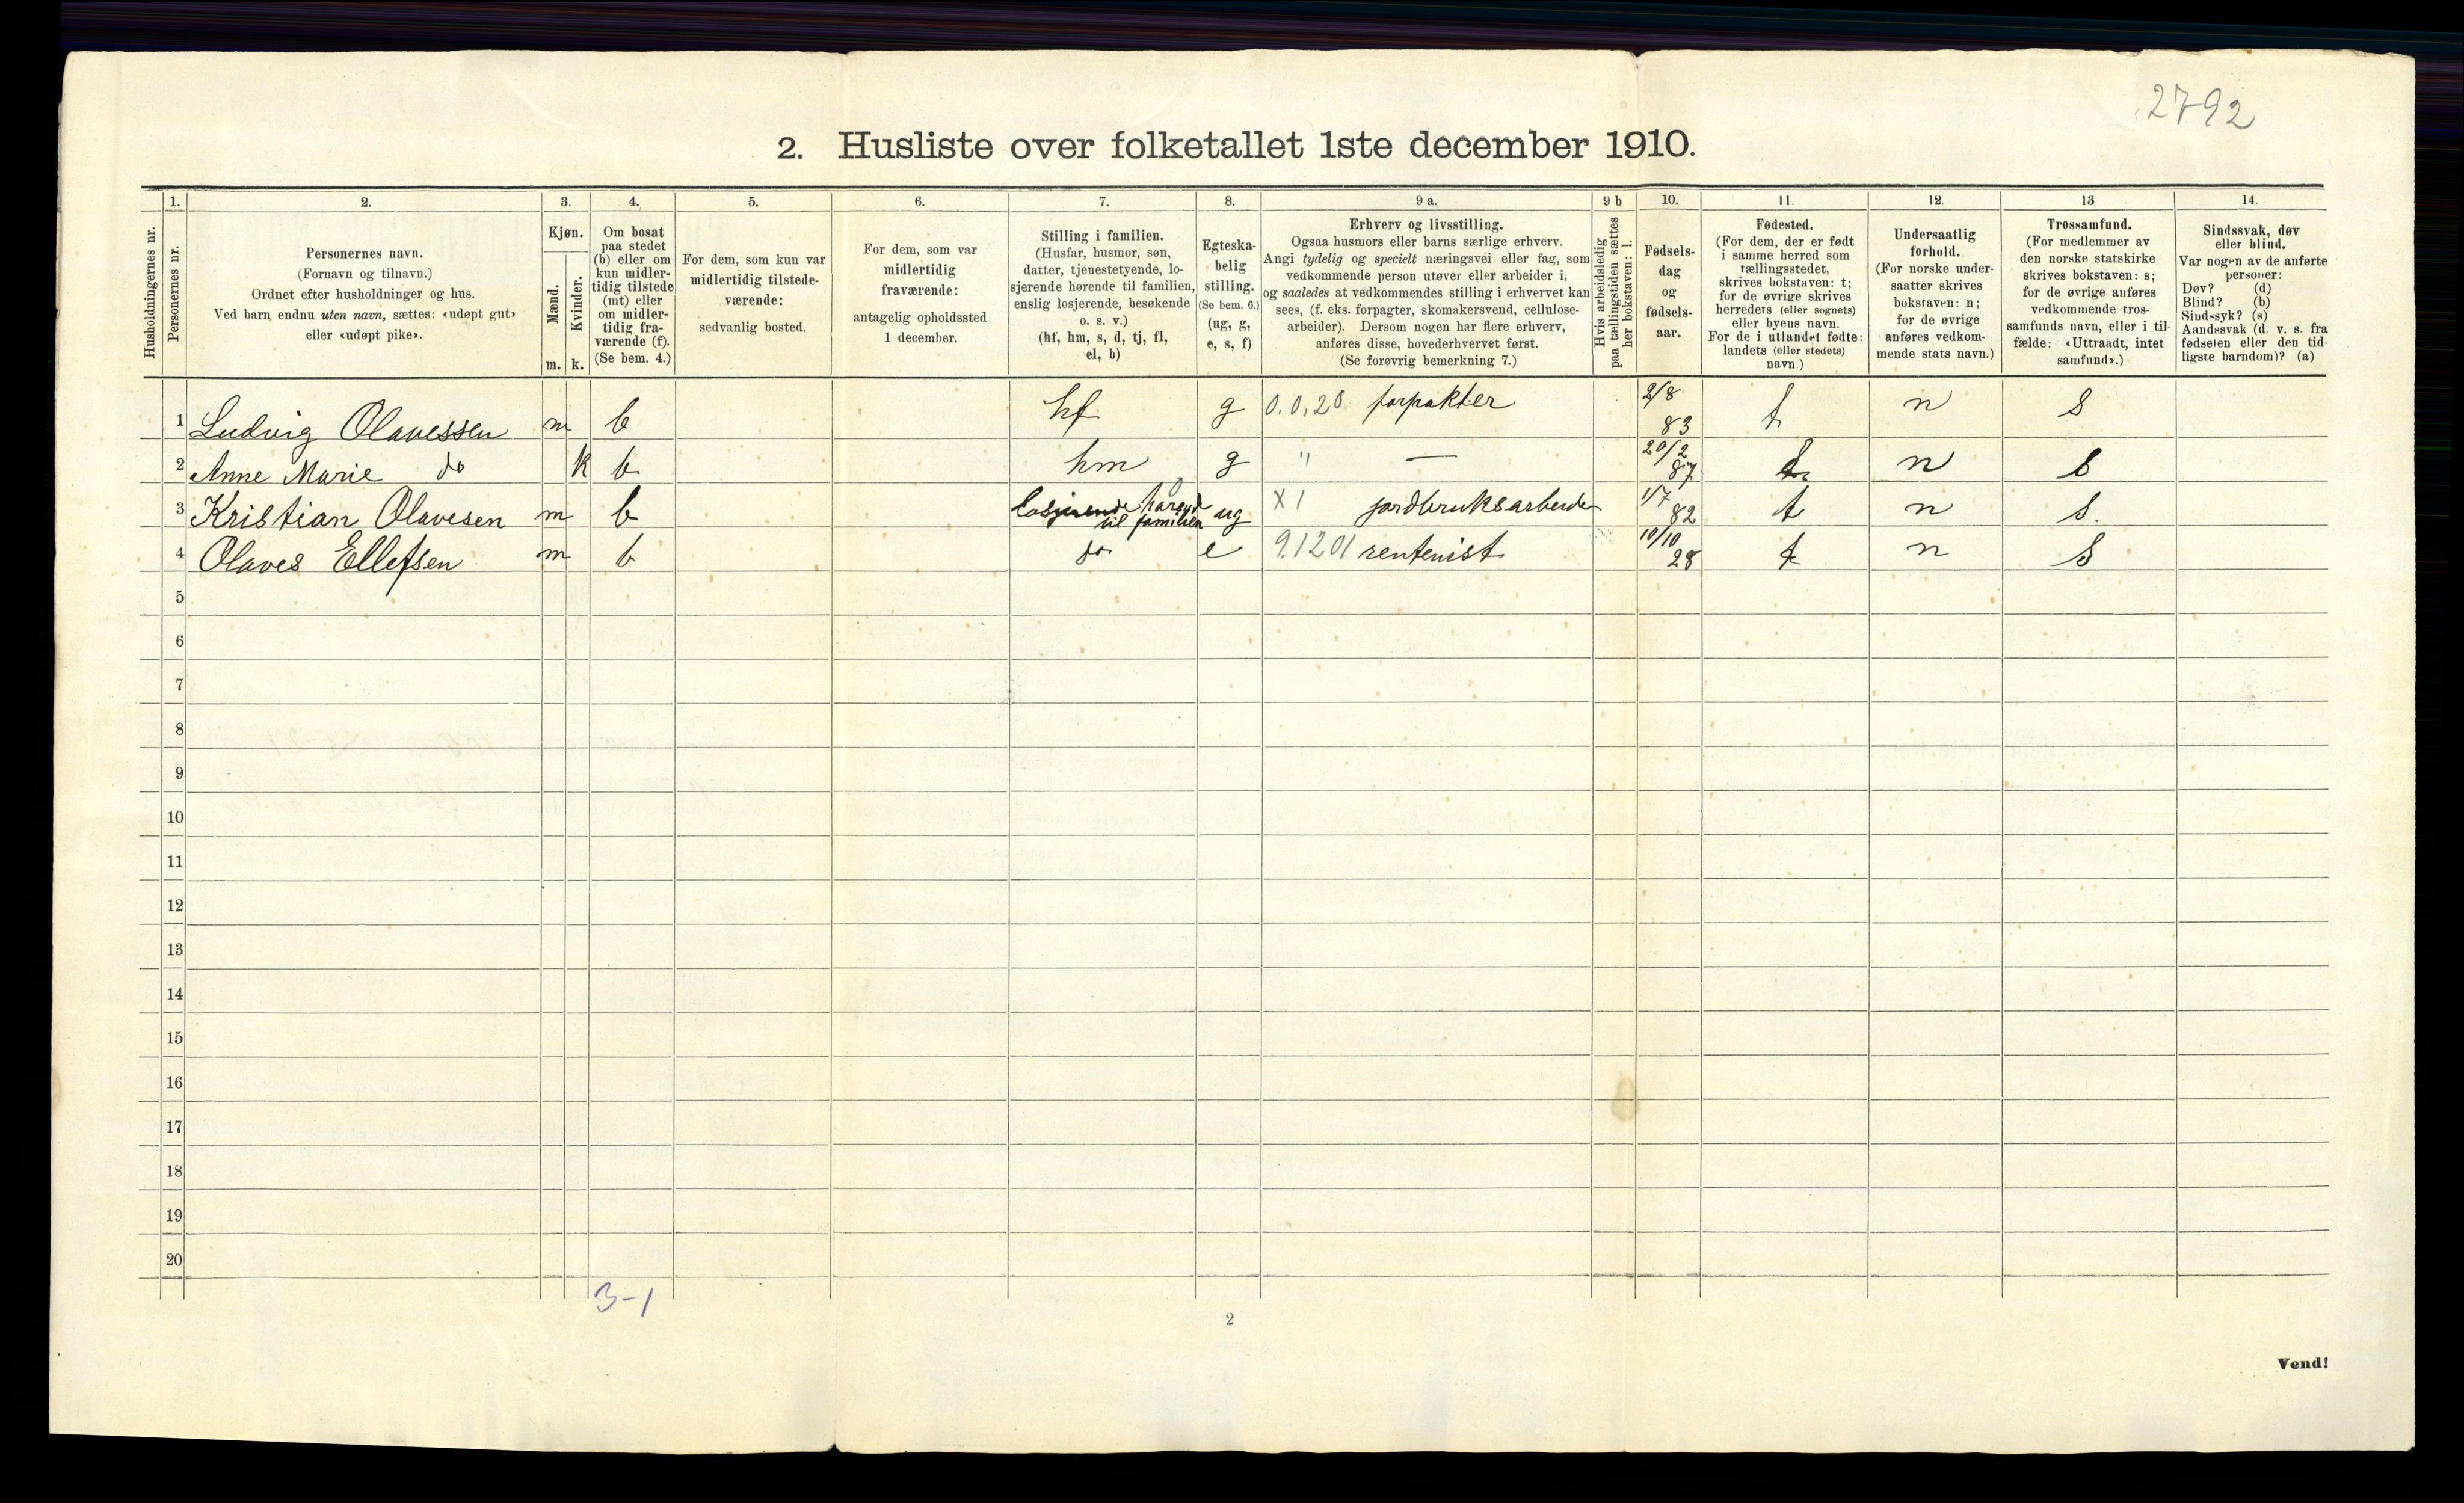 2792
2. Husliste over folketallet 1ste december 1910.
Husholdningernes nr.
1. Personernes nr.
2. Personernes navn. (Fornavn og tilnavn.) Ordnet efter husholdninger og hus. Ved barn endnu uten navn, sættes: «udøpt gut» eller «udøpt pike».
3. Kjøn. Mænd. m. Kvinder. k.
4. Om bosat paa stedet (b) eller om kun midlertidig tilstede (mt) eller om midlertidig fraværende (f). (Se bem. 4.)
5. For dem, som kun var midlertidig tilstedeværende: sedvanlig bosted.
6. For dem, som var midlertidig fraværende: antagelig opholdssted 1 december.
7. Stilling i familien. (Husfar, husmor, søn, datter, tjenestetyende, losjerende hørende til familien, enslig losjerende, besøkende o. s. v.) (hf, hm, s, d, tj, fl, el, b)
8. Egteskabelig stilling. (Se bem. 6.) (ug, g, e, s, f)
9 a. Erhverv og livsstilling. Ogsaa husmors eller barns særlige erhverv. Angi tydelig og specielt næringsvei eller fag, som vedkommende person utøver eller arbeider i, og saaledes at vedkommendes stilling i erhvervet kan sees, (f. eks. forpagter, skomakersvend, cellulosearbeider). Dersom nogen har flere erhverv, anføres disse, hovederhvervet først. (Se forøvrig bemerkning 7.)
9 b Hvis arbeidsledig paa tællingstiden sættes her bokstaven: l.
10. Fødselsdag og fødselsaar.
11. Fødested. (For dem, der er født i samme herred som tællingsstedet, skrives bokstaven: t; for de øvrige skrives herredets (eller sognets) eller byens navn. For de i utlandet fødte: landets (eller stedets) navn.)
12. Undersaatlig forhold. (For norske undersaatter skrives bokstaven: n; for de øvrige anføres vedkommende stats navn.)
13 Trossamfund. (For medlemmer av den norske statskirke skrives bokstaven: s; for de øvrige anføres vedkommende trossamfunds navn, eller i tilfælde: «Uttraadt, intet samfund».)
14. Sindssvak, døv eller blind. Var nogen av de anførte personer: Døv? (d) Blind? (b) Sindssyk? (s) Aandssvak (d. v. s. fra fødselen eller den tidligste barndom)? (a)
1 Ludvig Olavessen m b hf g 0.0,20 forpakter 2/8 83 t n s
2 Anne Marie do k b hm g " — 20/2 87 t n s
3 Kristian Olavesen m b losjerende hørende til familien ug X 1 jordbruksarbeider 1/7 82 t n s.
4 Olaves Ellefsen m b do e 9.1201 rentenist 10/10 28 t n s
5
6
7
8
9
10
11
12
13
14
15
16
17
18
19
20
3-1
2
Vend!